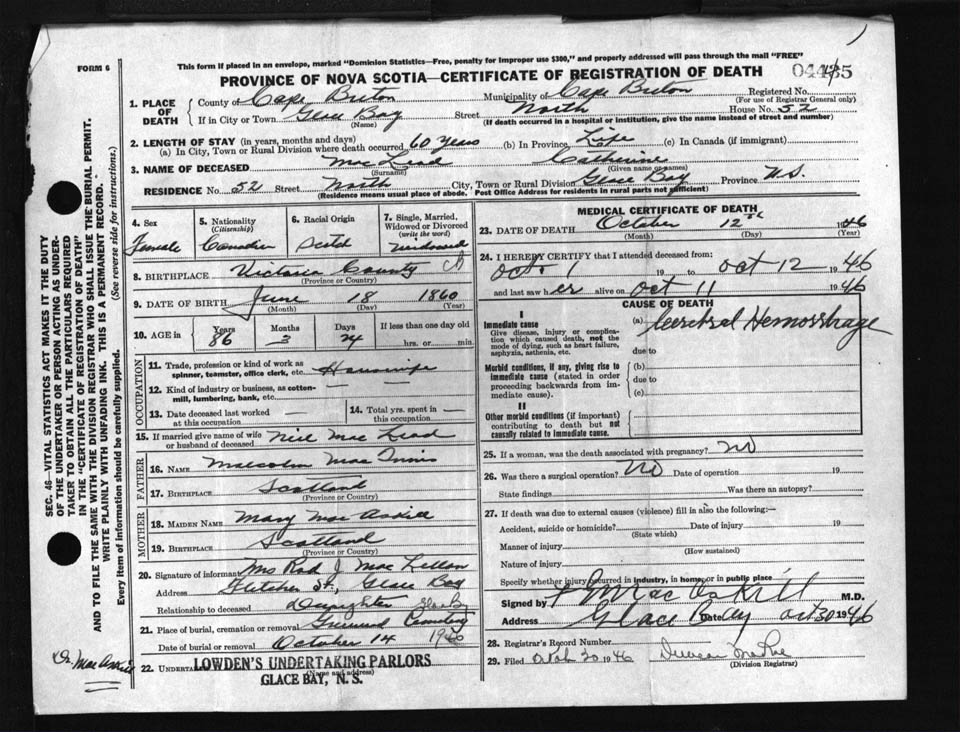 This form if placed in an envelope, marked "Dominion Statistics—Free, penalty for improper use $300," and properly addressed will pass through the mail "FREE"
FORM 6
PROVINCE OF NOVA SCOTIA—CERTIFICATE OF REGISTRATION OF DEATH
SEC. 46—VITAL STATISTICS ACT MAKES IT THE DUTY
OF THE UNDERTAKER OR PERSON ACTING AS UNDER-
TAKER TO OBTAIN ALL THE PARTICULARS REQUIRED
IN THE "CERTIFICATE OF REGISTRATION OF DEATH"
AND TO FILE THE SAME WITH THE DIVISION REGISTRAR WHO SHALL ISSUE THE BURIAL PERMIT.
WRITE PLAINLY WITH UNFADING INK. THIS IS A PERMANENT RECORD.
Every item of information should be carefully supplied. (See reverse side for instructions.)
1. PLACE OF DEATH
County of Cape Breton Municipality of Cape Breton Registered No.
(For use of Registrar General only)
If in City or Town Glace Bay Street North House No. 52
(Name) (If death occurred in a hospital or institution, give the name instead of street and number)
2. LENGTH OF STAY (in years, months and days)
(a) In City, Town or Rural Division where death occurred 60 years (b) In Province Life (c) In Canada (if immigrant)
3. NAME OF DECEASED MacLead Catherine
(Surname) (Given name or names)
RESIDENCE No. 52 Street North City, Town or Rural Division Glace Bay Province N.S.
(Residence means usual place of abode. Post Office Address for residents in rural parts not sufficient)
4. Sex Female
5. Nationality (Citizenship) Canadian
6. Racial Origin Scotch
7. Single, Married, Widowed or Divorced (write the word) Widowed
8. BIRTHPLACE Victoria County
(Province or Country)
9. DATE OF BIRTH June 18 1860
(Month) (Day) (Year)
10. AGE in Years 86 Months 3 Days 24 If less than one day old
hrs. or min.
OCCUPATION
11. Trade, profession or kind of work as spinner, teamster, office clerk, etc. Housewife
12. Kind of industry or business, as cotton-mill, lumbering, bank, etc. —
13. Date deceased last worked at this occupation —
14. Total yrs. spent in this occupation —
15. If married give name of wife or husband of deceased Niel MacLead
FATHER
16. NAME Malcolm MacInnis
17. BIRTHPLACE Scotland
(Province or Country)
MOTHER
18. MAIDEN NAME Mary MacAskill
19. BIRTHPLACE Scotland
(Province or Country)
20. Signature of informant Mrs Rod J MacLellan
Address Fletcher St, Glace Bay
Relationship to deceased Daughter
21. Place of burial, cremation or removal Greenwood Cemetery
Date of burial or removal October 14 1946
22. UNDERTAKER LOWDEN'S UNDERTAKING PARLORS
(Name and address)
GLACE BAY, N. S.
Dr. MacAskill
MEDICAL CERTIFICATE OF DEATH
23. DATE OF DEATH October 12th 1946
(Month) (Day) (Year)
24. I HEREBY CERTIFY that I attended deceased from:
Oct. 1 19 to Oct 12 1946
and last saw her alive on Oct 11 1946
CAUSE OF DEATH
I
Immediate cause
Give disease, injury or complication which caused death, not the mode of dying, such as heart failure, asphyxia, asthenia, etc.
(a) Cerebral Hemorrhage
due to
Morbid conditions, if any, giving rise to immediate cause (stated in order proceeding backwards from immediate cause).
(b)
due to
(c)
II
Other morbid conditions (if important) contributing to death but not causally related to immediate cause.
25. If a woman, was the death associated with pregnancy? No
26. Was there a surgical operation? No Date of operation 19
State findings Was there an autopsy?
27. If death was due to external causes (violence) fill in also the following:—
Accident, suicide or homicide? Date of injury 19
(State which)
Manner of injury
(How sustained)
Nature of injury
Specify whether injury occurred in industry, in home, or in public place
Signed by MacAskill M.D.
Address Glace Bay Date Oct 30 1946
28. Registrar's Record Number
29. Filed 1946 Duncan MacRae
(Division Registrar)